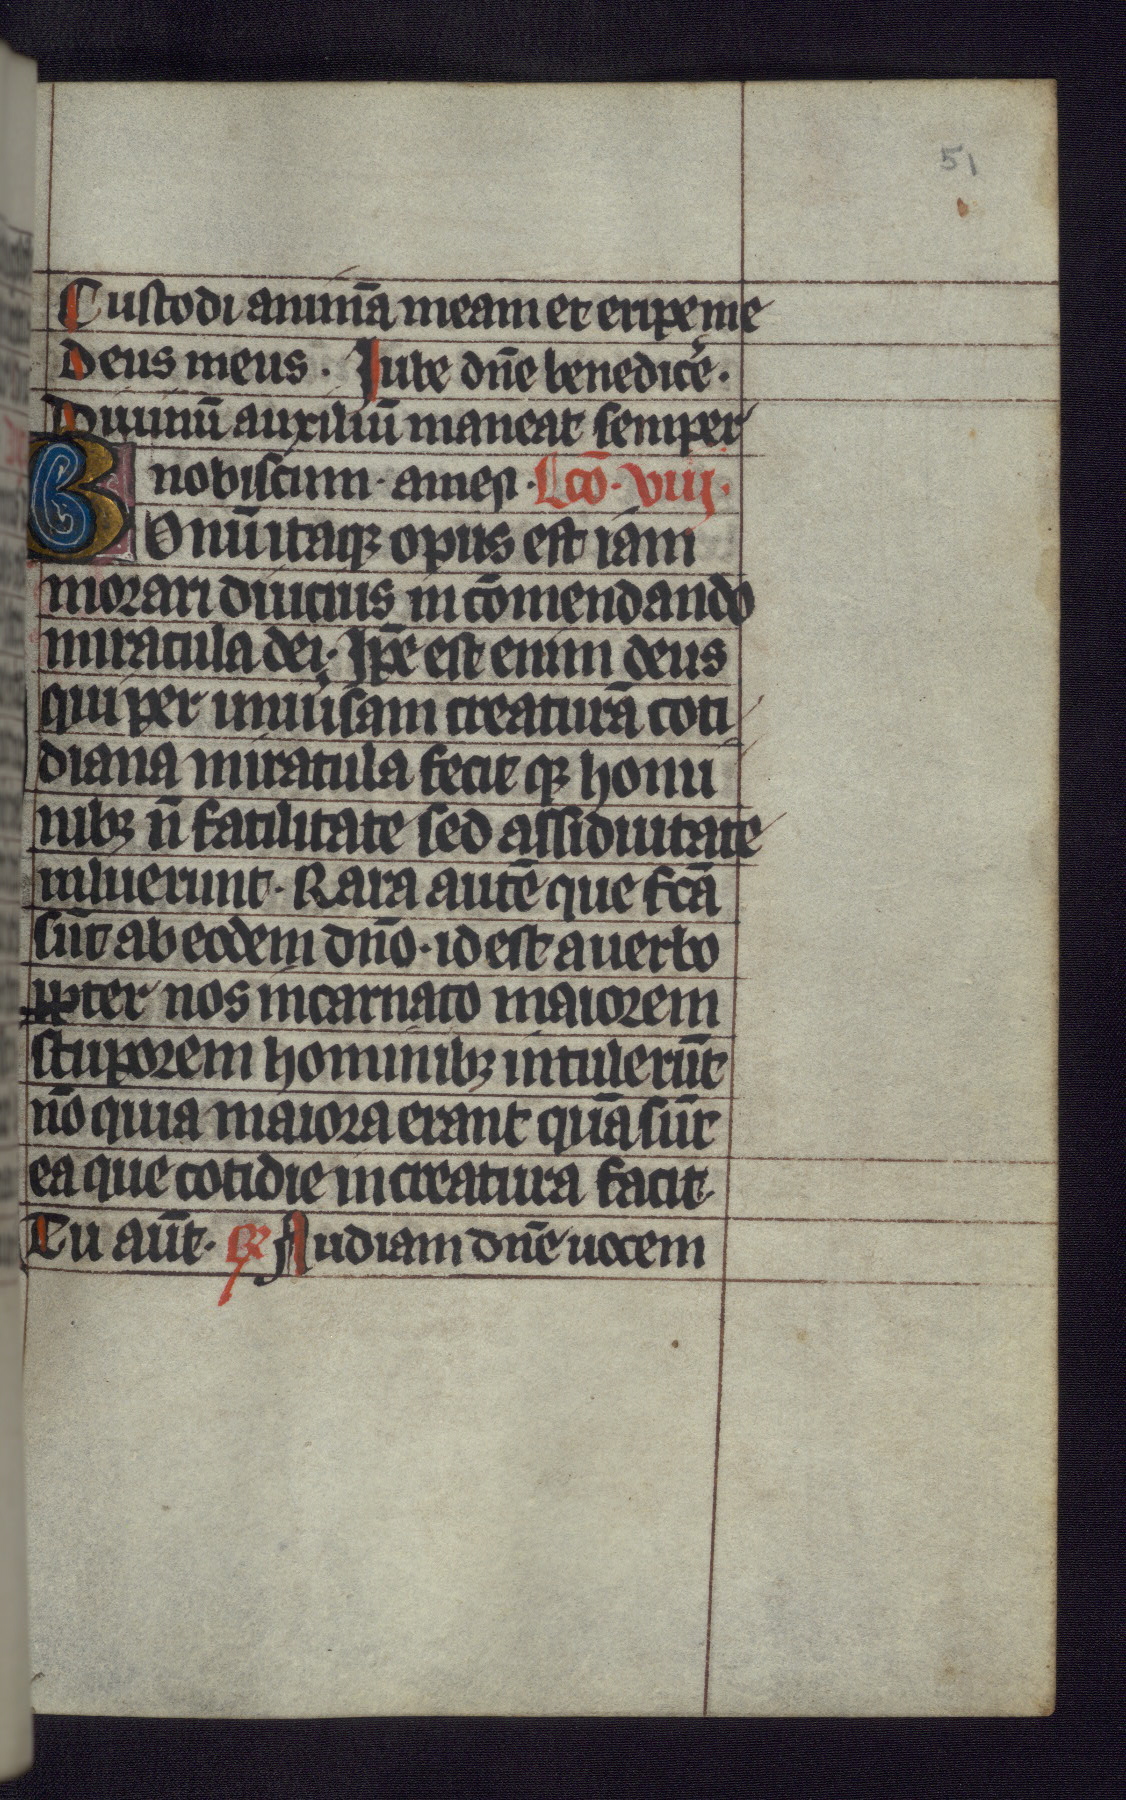 51
Custodi animā meam et eripe me
Deus meus. Iube dn̄e benedicē.
Diuinū auxiliū maneat semper
nobiscum. amen. Lcō. viij.
Onū itaqꝫ opus est iam
morari diucius in cōmendando
miracula dei. Ip̄e est enim deus
qui per uniu͛sam creaturā coti
diana miracula fecit qꝫ homi
nibꝫ n̄ facilitate sed assiduitate
uiluerunt. Rara autē que fcā
sūt ab eodem dn̄o. id est a uerbo
ꝓpter nos incarnato maiorem
stuporem hominibꝫ intulerūt
nō quia maiora erant quā sūt
ea que cotidie in creatura facit.
Tu aūt. ℞ Audiam dn̄e uocem